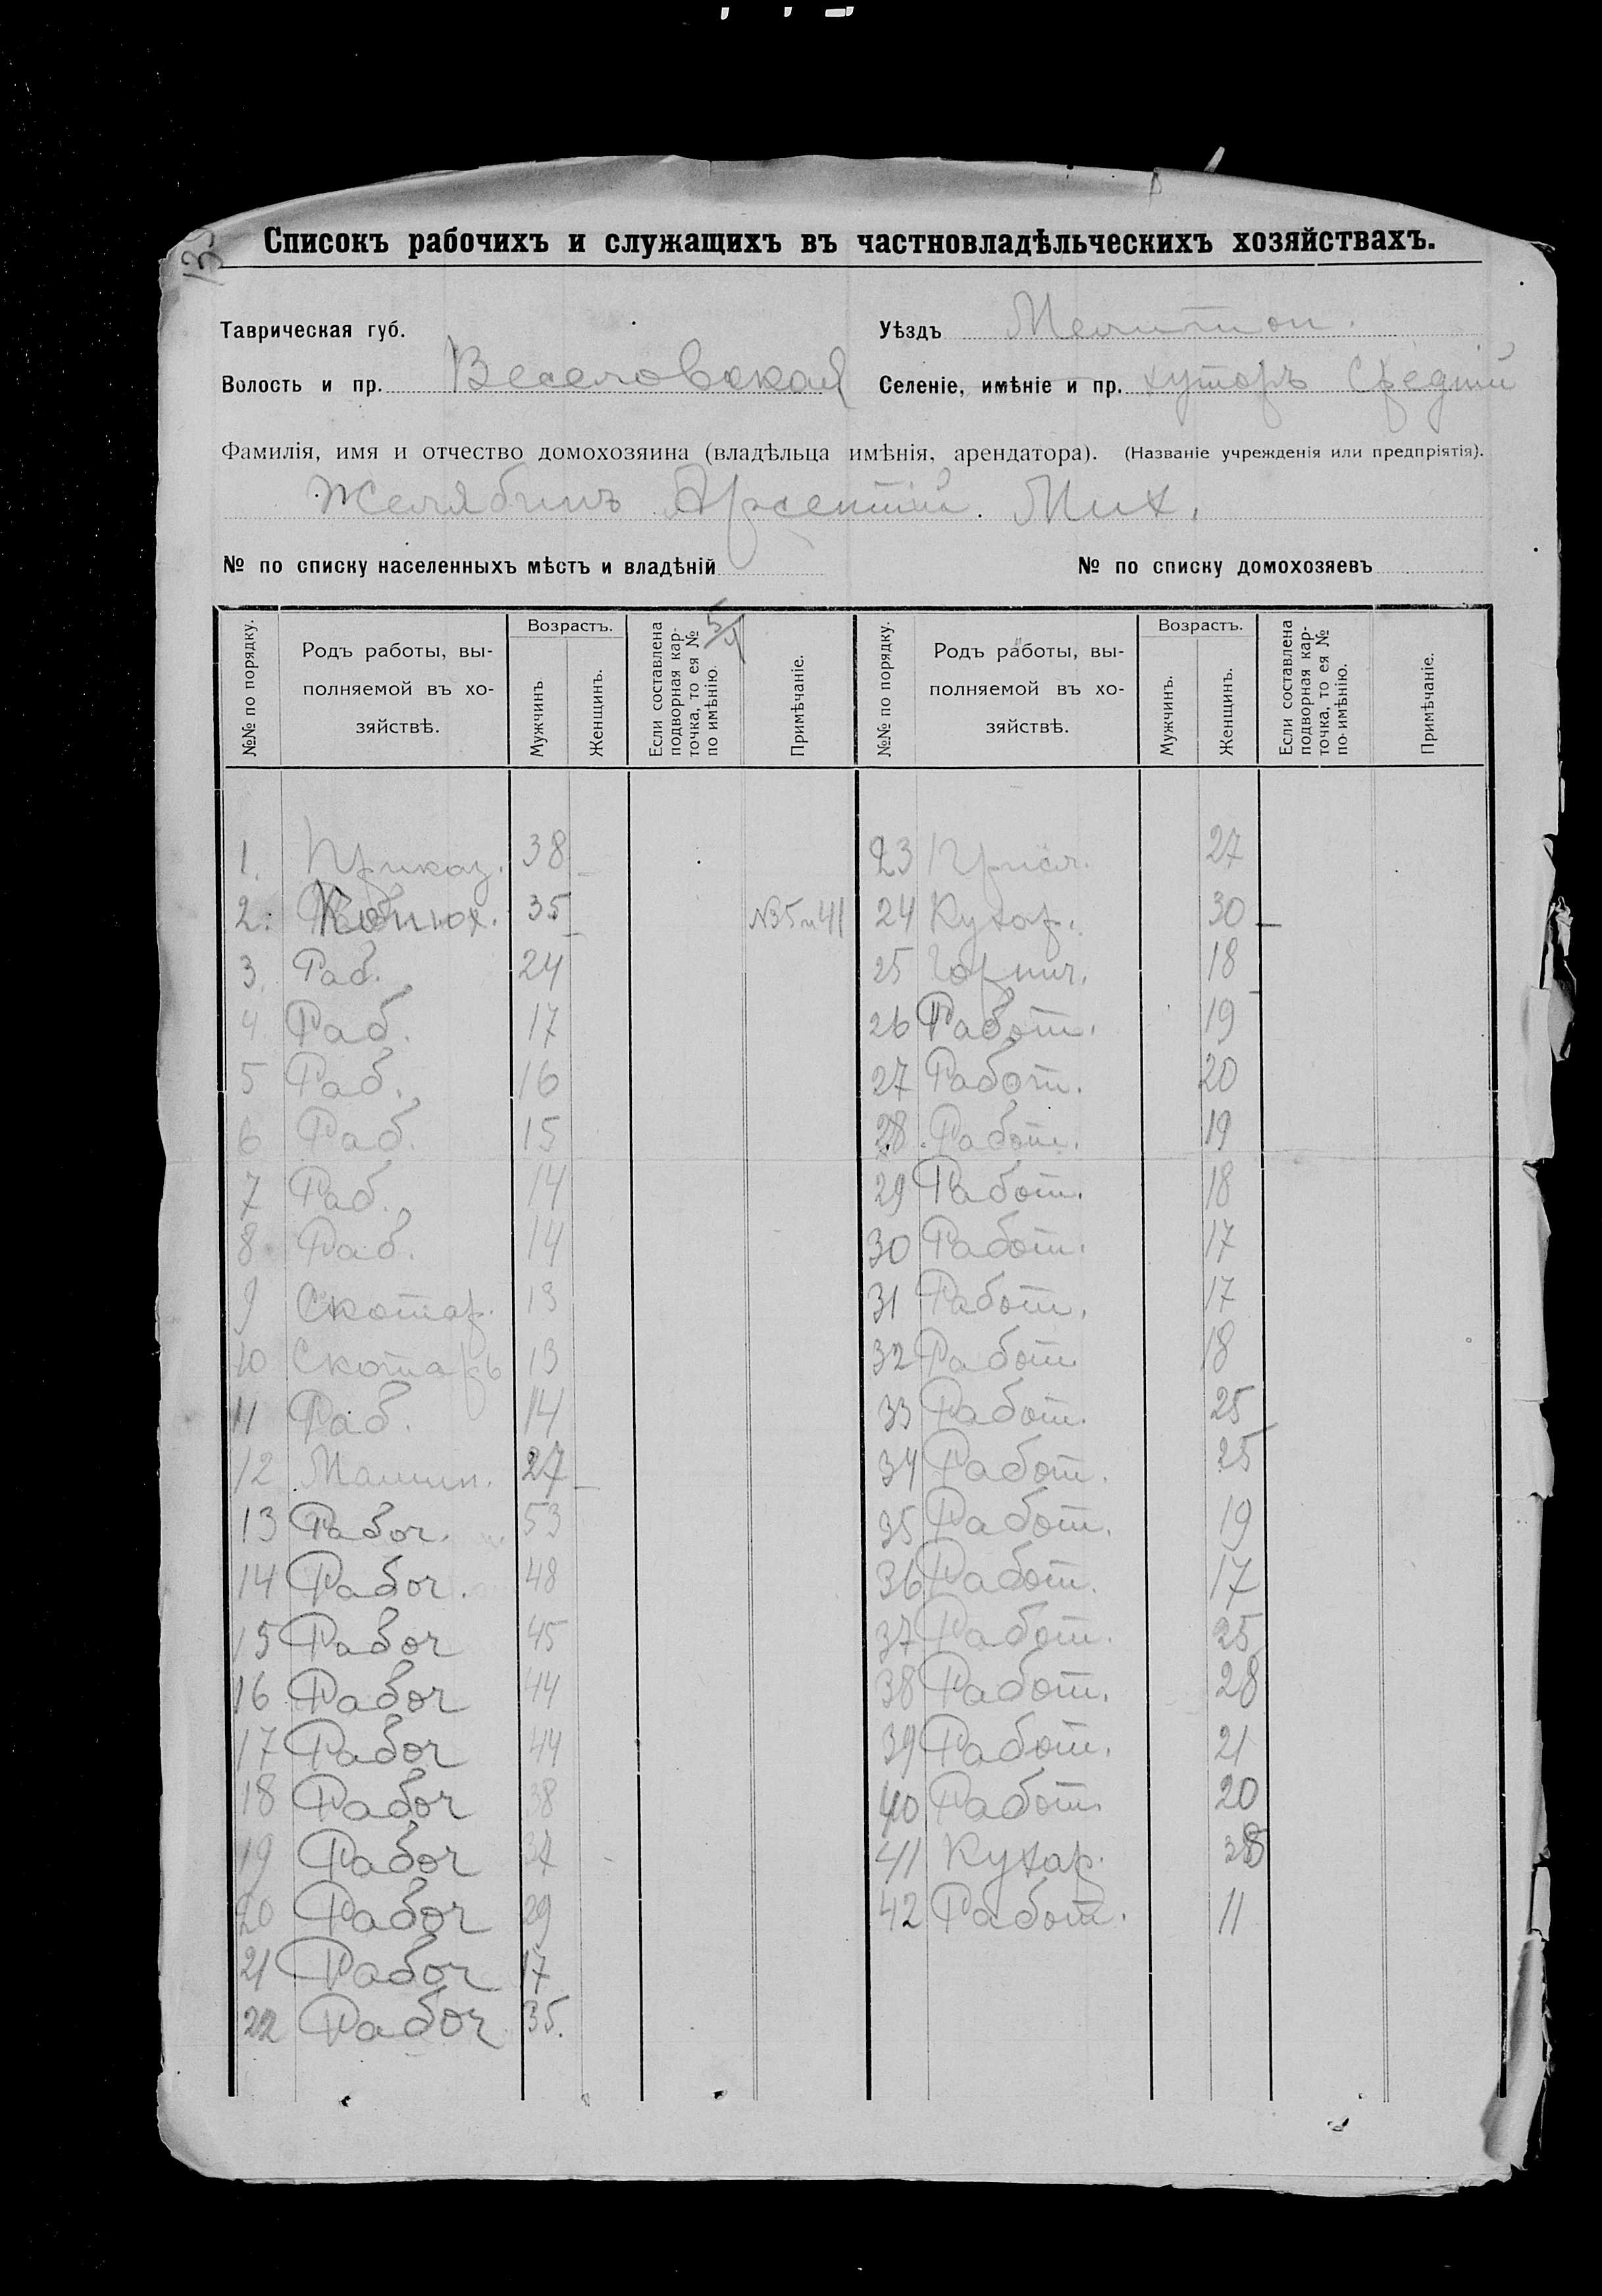 Списокъ рабочихъ и служащихъ въ частновладѣльческихъ хозяйствахъ.
Таврическая губ. Уѣздъ Мелитоп.
Волость и пр. Веселовская Селеніе, имѣніе и пр. хуторъ Средній
Фамилія, имя и отчество домохозяина (владѣльца имѣнія, арендатора). (Названіе учрежденія или предпріятія).
Желябинъ Арсентій. Мих.
№ по списку населенныхъ мѣстъ и владѣній № по списку домохозяевъ
№№ по порядку. Родъ работы, выполняемой въ хозяйствѣ. Возрастъ. Мужчинъ. Женщинъ. Если составлена подворная карточка, то ея № по имѣнію. Примѣчаніе. №№ по порядку. Родъ работы, выполняемой въ хозяйствѣ. Возрастъ. Мужчинъ. Женщинъ. Если составлена подворная карточка, то ея № по имѣнію. Примѣчаніе.
1. Приказ. 38 23 Присл. 27
2. Конюх. 35 №35 и 41 24 Кухар. 30
3. Раб. 24 25 Горнич. 18
4. Раб. 17 26 Работ. 19
5 Раб. 16 27 Работ. 20
6 Раб. 15 28 Работ. 19
7 Раб. 14 29 Работ. 18
8 Раб. 14 30 Работ. 17
9 Скотар. 13 31 Работ. 17
10 Скотарь 13 32 Работ. 18
11 Раб. 14 33 Работ. 25
12 Машин. 27 34 Работ. 25
13 Рабоч. 53 35 Работ. 19
14 Рабоч. 48 36 Работ. 17
15 Рабоч 45 37 Работ. 25
16 Рабоч 44 38 Работ. 28
17 Рабоч 44 39 Работ. 21
18 Рабоч 38 40 Работ. 20
19 Рабоч 37 41 Кухар.
20 Рабоч 29 42 Работ. 11
21 Рабоч 17
22 Рабоч 35.